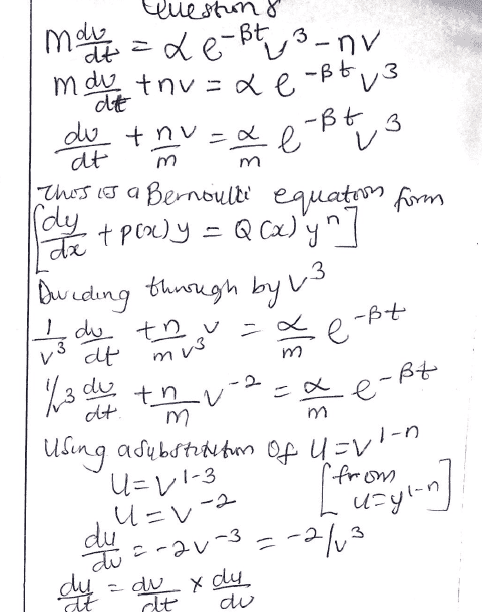 Question 8
m dv/dt = α e^-βt v^3 - nv
m dv/dt + nv = α e^-βt v^3
dv/dt + nv/m = α/m e^-βt v^3
This is a Bernoulli equation form
[dy/dx + p(x)y = Q(x) y^n]
Dividing through by v^3
1/v^3 dv/dt + n/m v/v^3 = α/m e^-βt
1/v^3 dv/dt + n/m v^-2 = α/m e^-βt
Using a substitution of u = v^1-n
u = v^1-3 [from
u = v^-2 u = y^1-n]
du/dv = -2v^-3 = -2/v^3
du/dt = dv/dt × du/dv